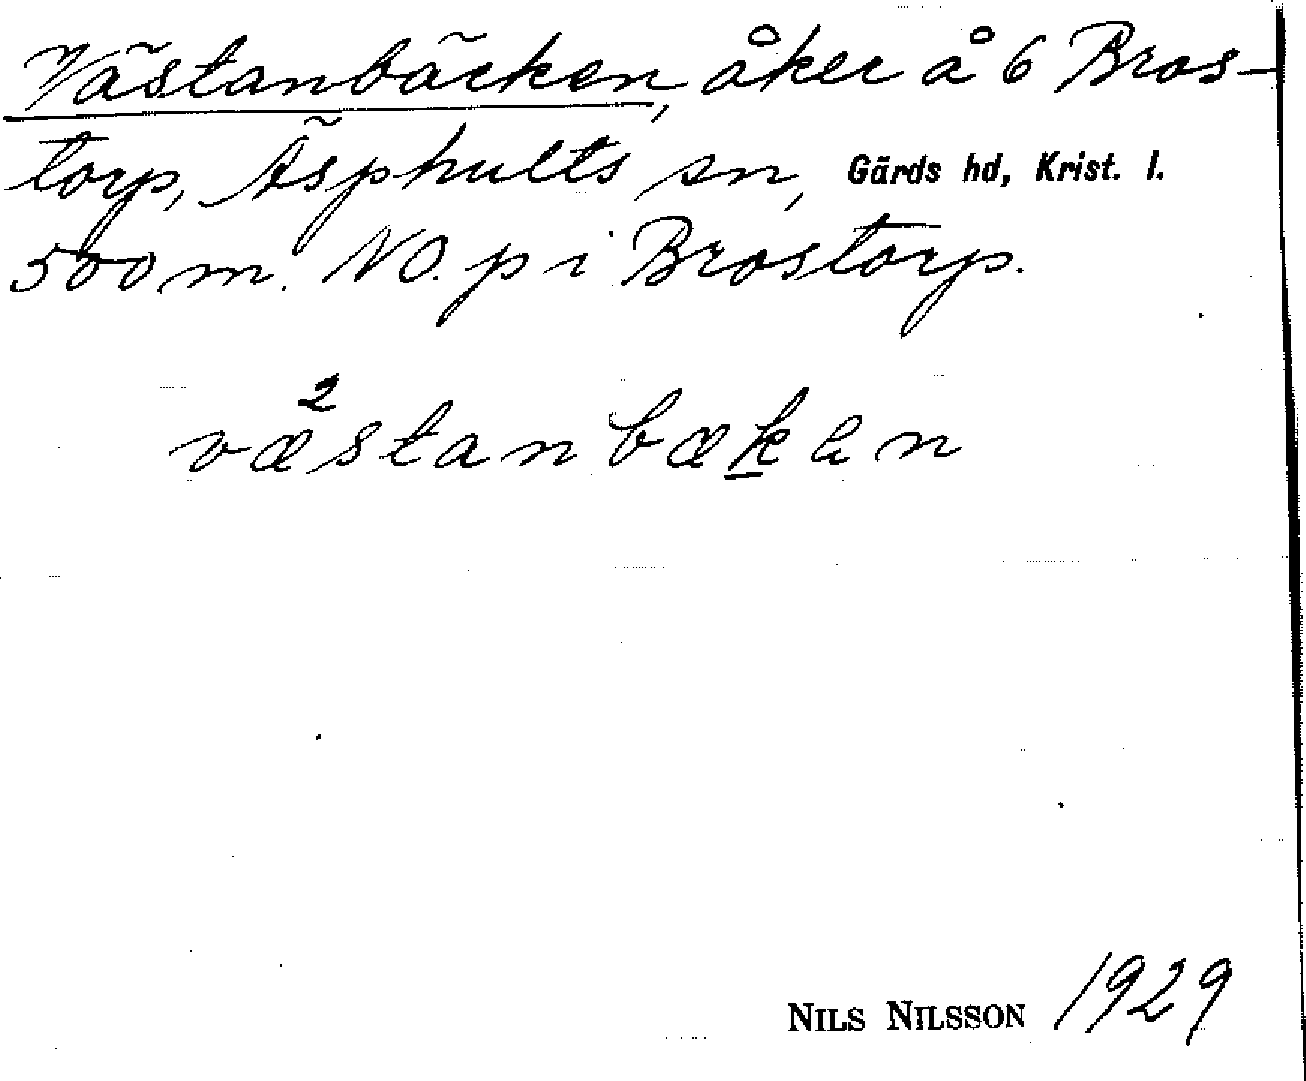 Västanbäcken, åker å 6 Bros-
torp, Äsphults sn, Gärds hd, Krist. l.
500 m. NO. p i Brostorp.
væ²stanbæk̲an
NILS NILSSON 1929